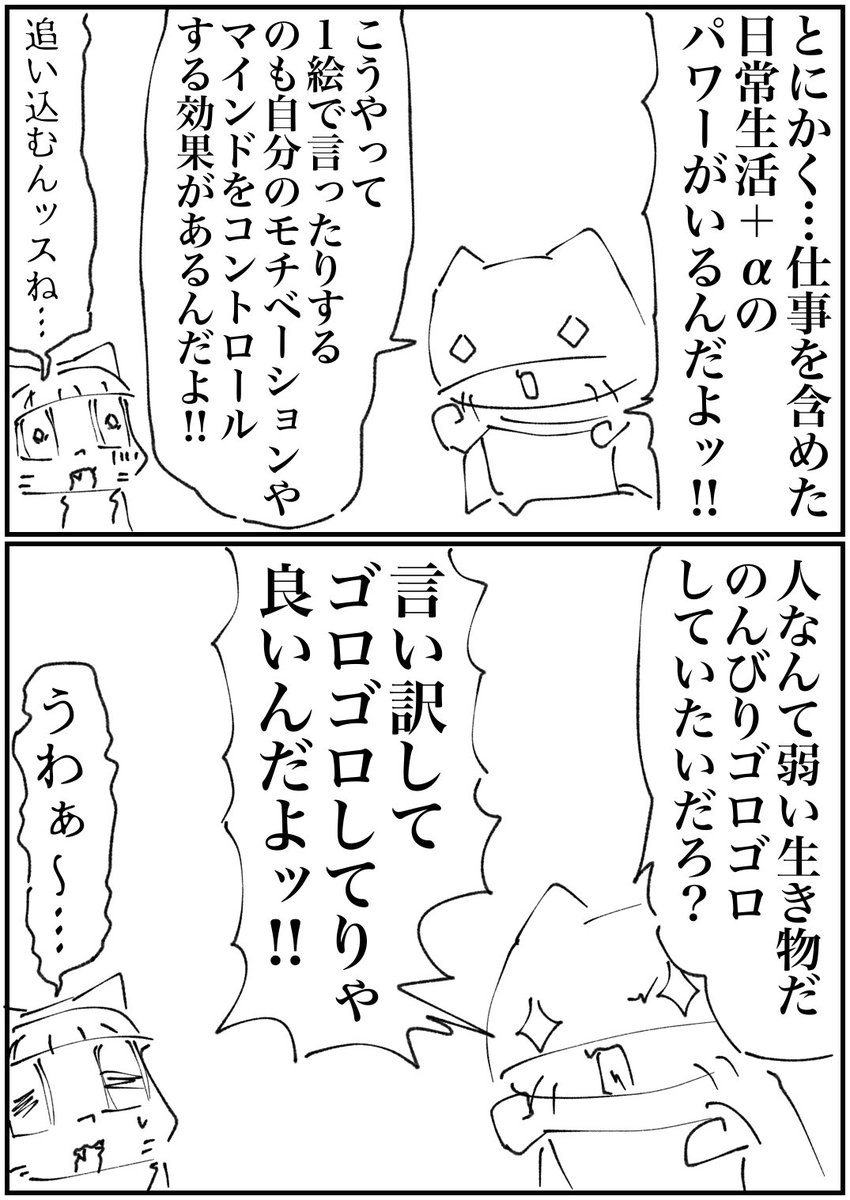 とにかく…仕事を含めた
日常生活＋αの
パワーがいるんだよッ!!
こうやって
1絵で言ったりする
のも自分のモチベーションや
マインドをコントロール
する効果があるんだよ!!
追い込むんッスね…
人なんて弱い生き物だ
のんびりゴロゴロ
していたいだろ?
言い訳して
ゴロゴロしてりゃ
良いんだよッ!!
うわぁ～‥‥